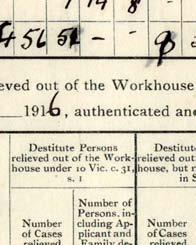 14 8
56 51 - -
eved out of the Workhouse
1916, authenticated an
Destitute Persons
relieved out of the Work-
house under 10 Vic. c. 31,
s. I
Destitute
relieved out
house, but r
in S
Number
of Cases
relieved
Number of
Persons, in-
cluding Ap-
plicant and
Family de-
Number
of Cases
relieved